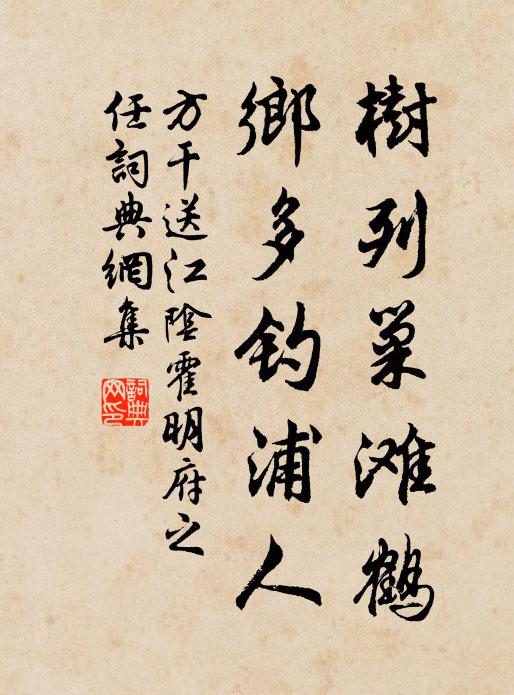 樹列巢滩鶴
鄉多釣浦人
方干送江陰霍明府之
任詞典網集
詞典
网印